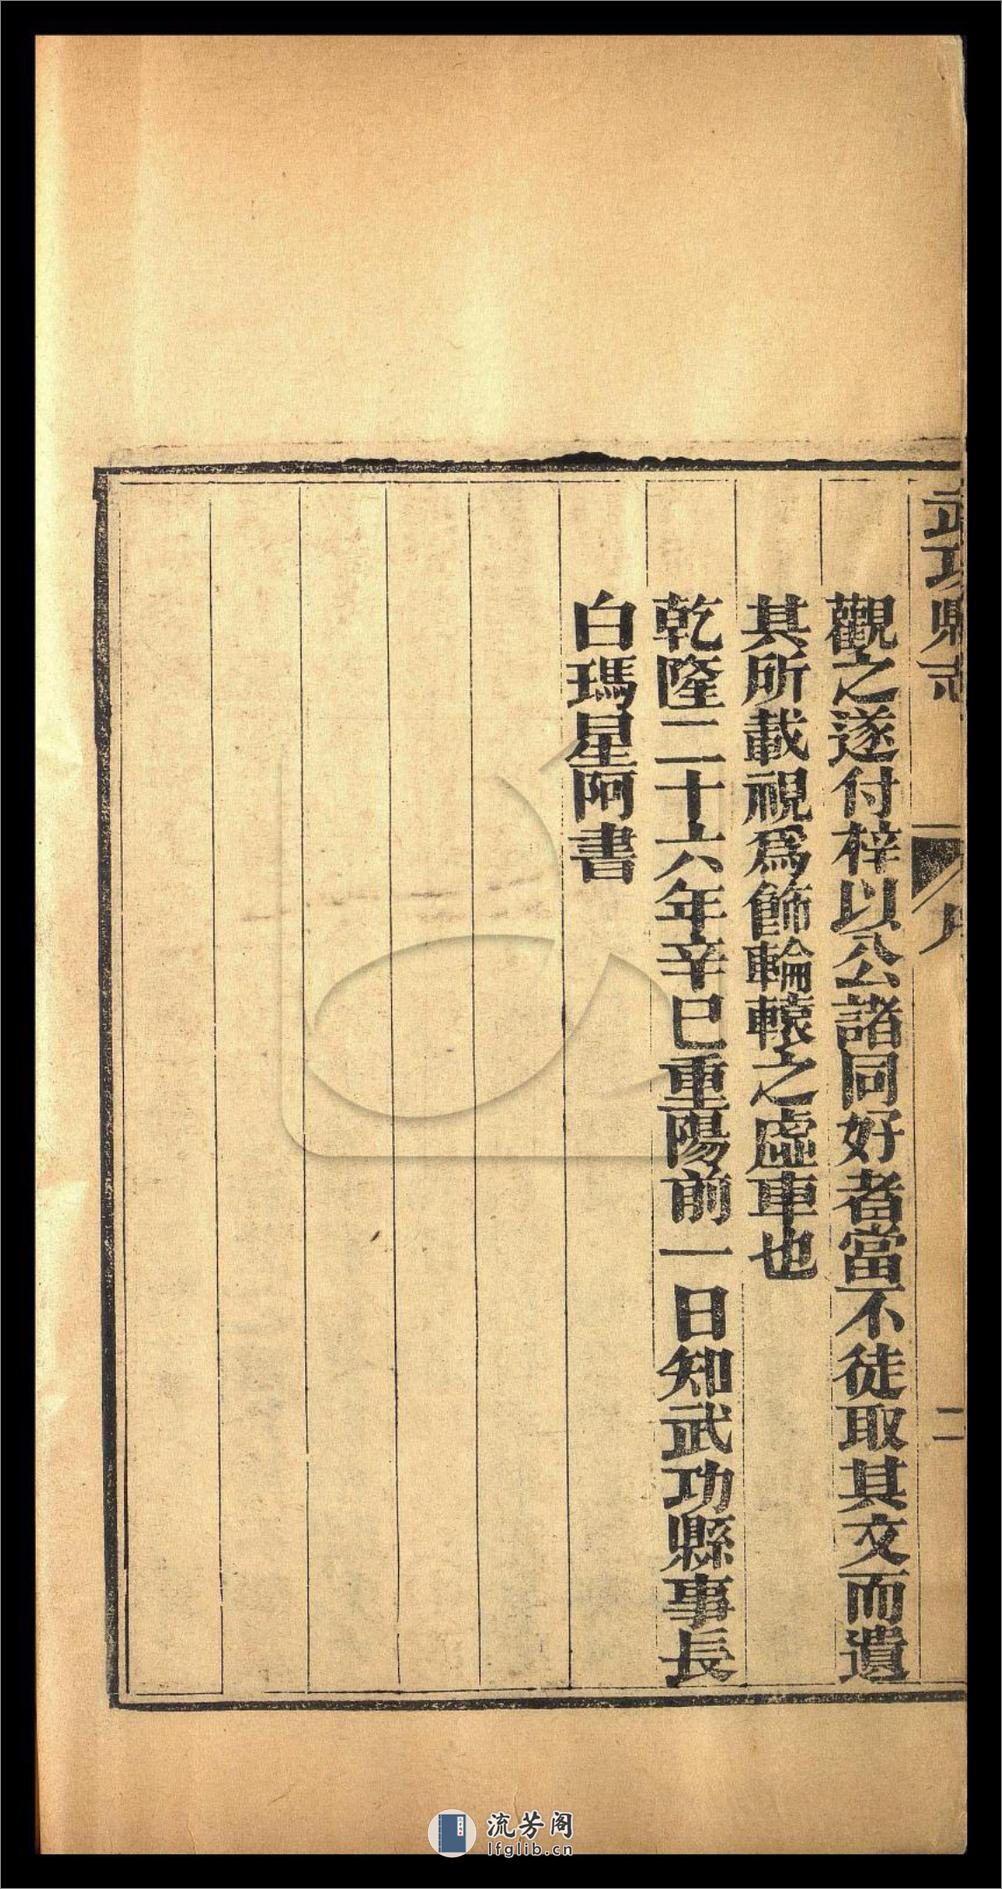 武功縣志
序
二
觀之遂付梓以公諸同好者當不徒取其文而遺
其所載視爲飾輪轅之虛車也
乾隆二十六年辛巳重陽前一日知武功縣事長
白瑪星阿書
流芳阁
lfglib.cn